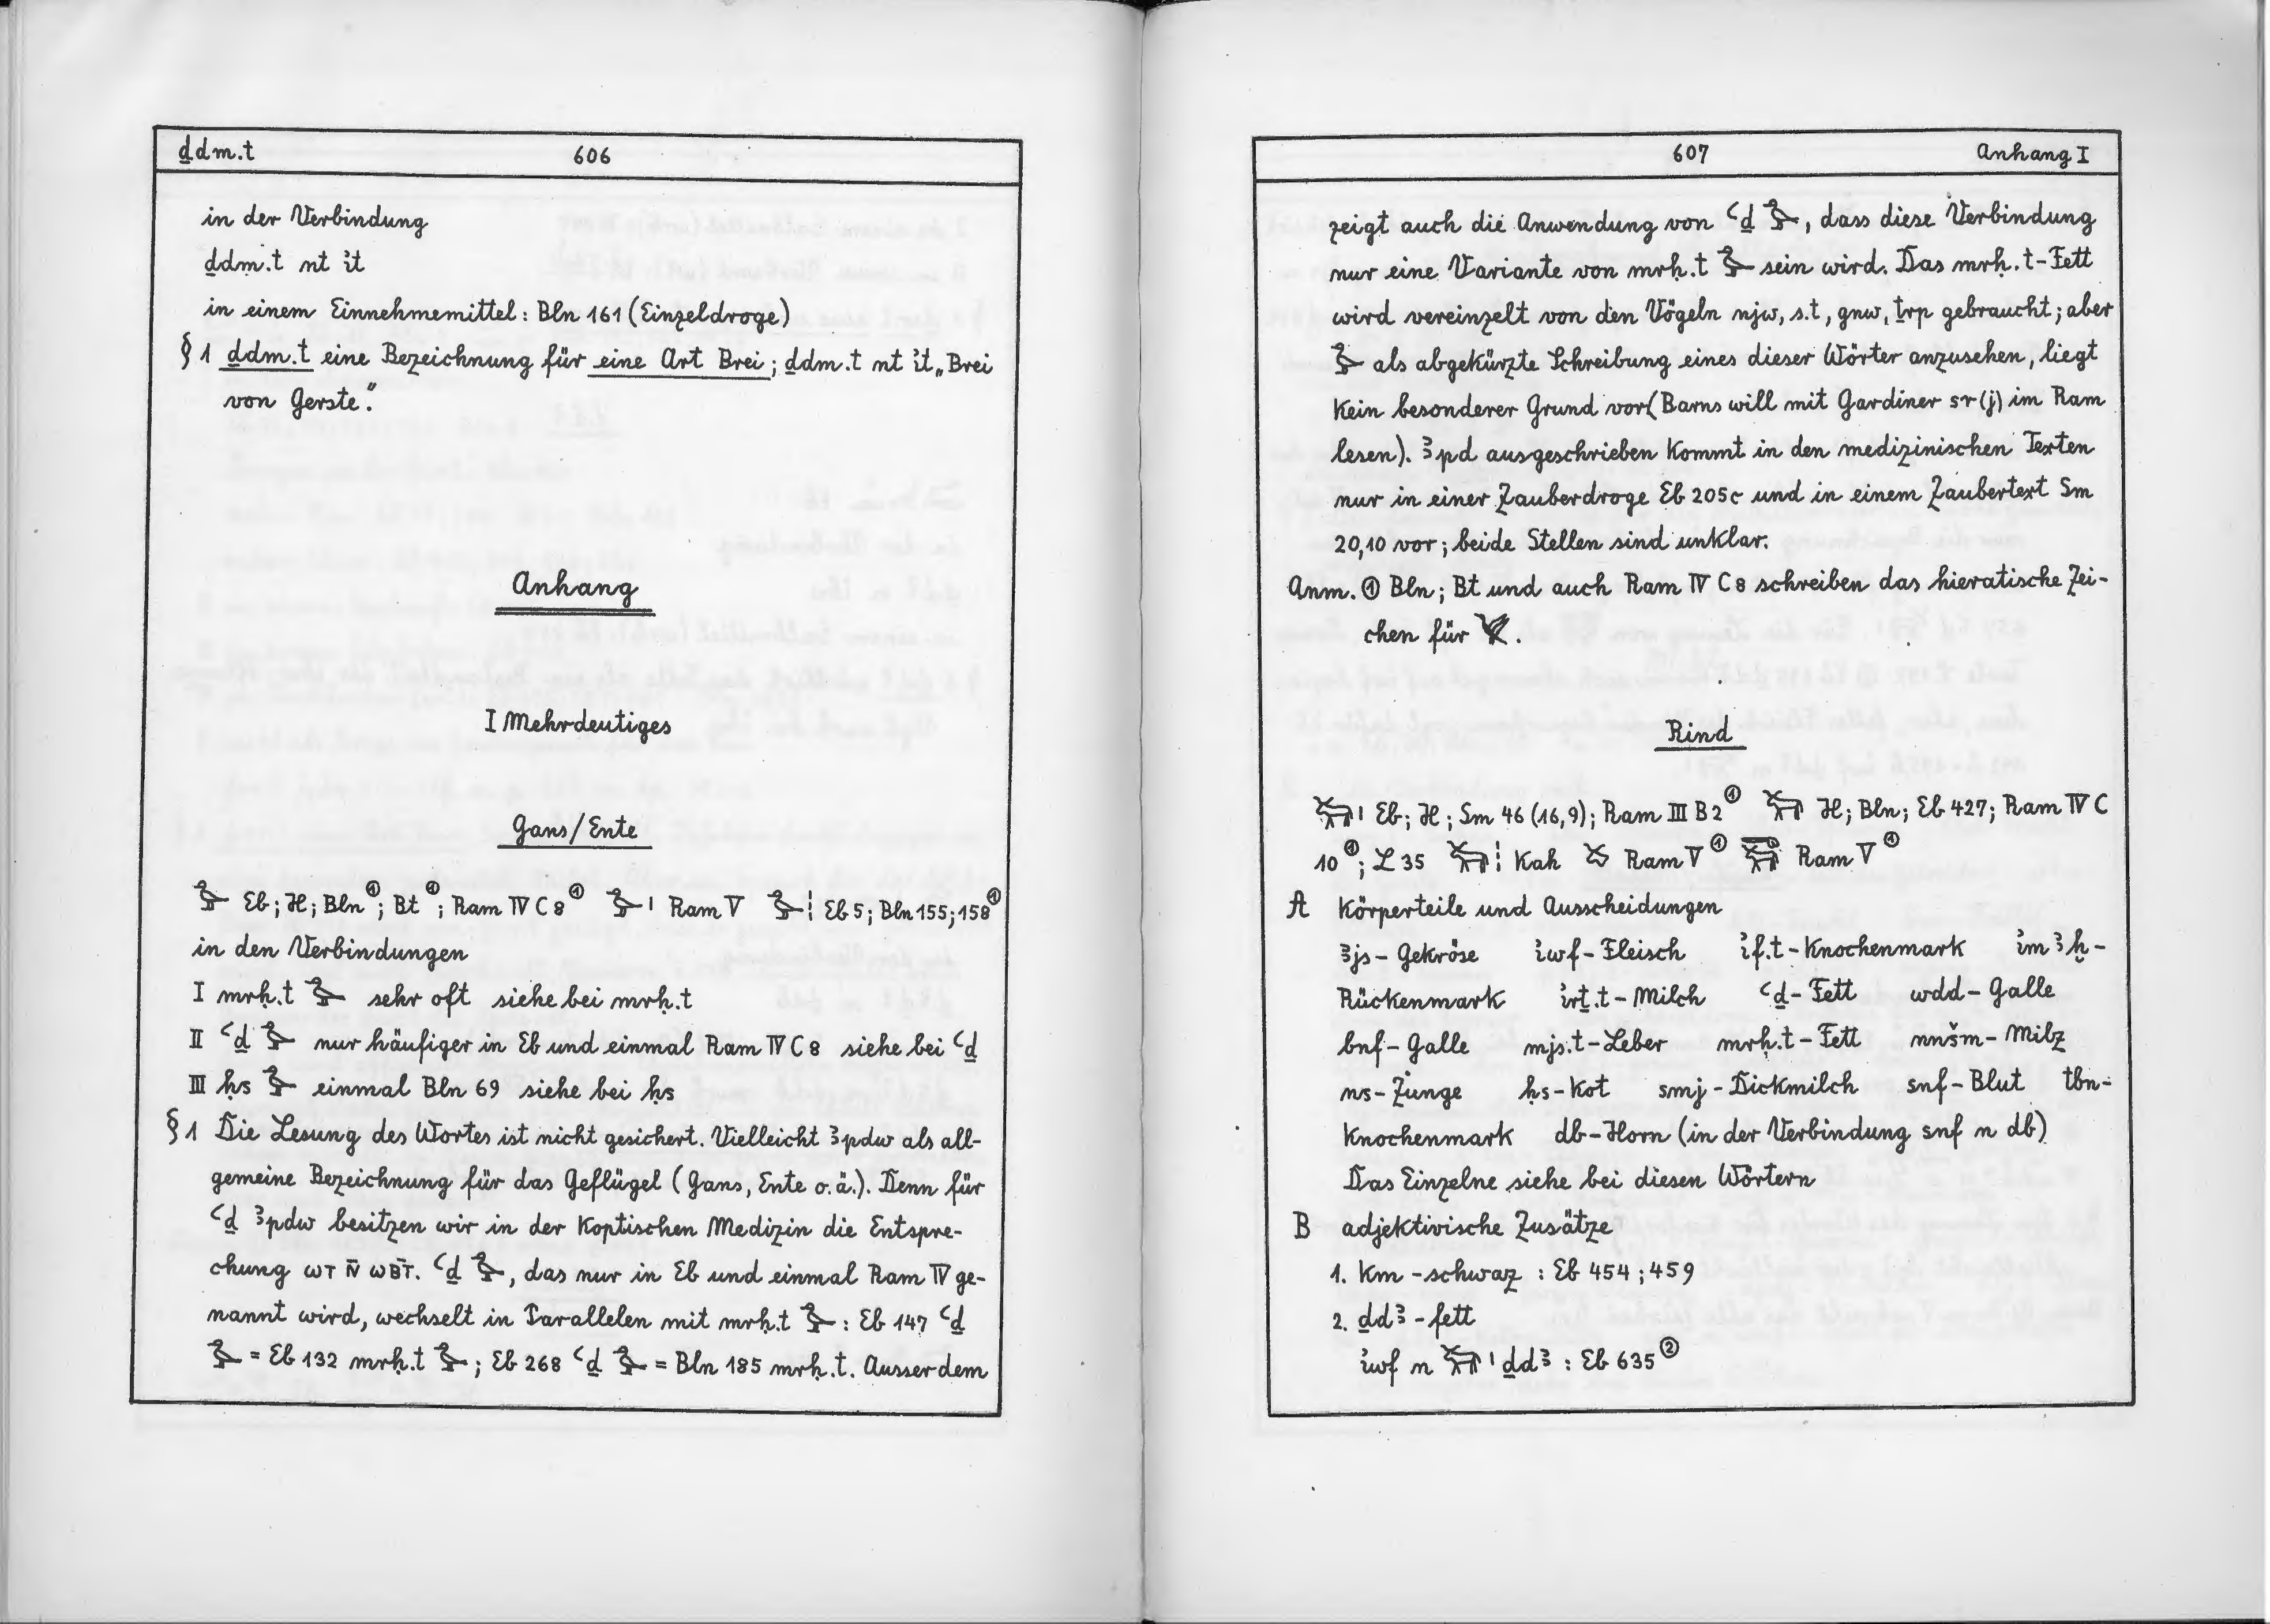 ḏdm.t 606
in der Verbindung
ḏdm.t nt i͗t
in einem Einnehmemittel: Bln 161 (Einzeldroge)
§ 1 ḏdm.t eine Bezeichnung für eine Art Brei; ḏdm.t nt i͗t „Brei
von Gerste".
Anhang
I Mehrdeutiges
Gans/Ente
𓅭 Eb; H; Bln①; Bt①; Ram IV C 8① 𓅭𓏤 Ram V 𓅭𓏪 Eb 5; Bln 155; 158①
in den Verbindungen
I mrḥ.t 𓅭 sehr oft siehe bei mrḥ.t
II ꜥḏ 𓅭 nur häufiger in Eb und einmal Ram IV C 8 siehe bei ꜥḏ
III ḥs 𓅭 einmal Bln 69 siehe bei ḥs
§ 1 Die Lesung des Wortes ist nicht gesichert. Vielleicht ꜣpdw als all-
gemeine Bezeichnung für das Geflügel (Gans, Ente o. ä.). Denn für
ꜥḏ ꜣpdw besitzen wir in der Koptischen Medizin die Entspre-
chung ⲱⲧ ⲛ̄ ⲱⲃⲧ̄. ꜥḏ 𓅭, das nur in Eb und einmal Ram IV ge-
nannt wird, wechselt in Parallelen mit mrḥ.t 𓅭: Eb 147 ꜥḏ
𓅭 = Eb 132 mrḥ.t 𓅭; Eb 268 ꜥḏ 𓅭 = Bln 185 mrḥ.t. Ausserdem
607 Anhang I
zeigt auch die Anwendung von ꜥḏ 𓅭, dass diese Verbindung
nur eine Variante von mrḥ.t 𓅭 sein wird. Das mrḥ.t-Fett
wird vereinzelt von den Vögeln njw, s.t, gnw, ṯrp gebraucht; aber
𓅭 als abgekürzte Schreibung eines dieser Wörter anzusehen, liegt
Kein besonderer Grund vor (Barns will mit Gardiner sr(j) im Ram
lesen). ꜣpd ausgeschrieben Kommt in den medizinischen Texten
nur in einer Zauberdroge Eb 205c und in einem Zaubertext Sm
20,10 vor; beide Stellen sind unklar.
Anm. ① Bln; Bt und auch Ram IV C 8 schreiben das hieratische Zei-
chen für .
Rind
𓃒𓏤 Eb; H; Sm 46 (16,9); Ram III B 2① 𓃒 H; Bln; Eb 427; Ram IV C
10①; L 35 𓃒𓏪 Kah Ram V① Ram V①
A Körperteile und Ausscheidungen
ꜣjs-Gekröse i͗wf-Fleisch i͗f.t-Knochenmark i͗mꜣḫ-
Rückenmark i͗rṯ.t-Milch ꜥḏ-Fett wdd-Galle
bnf-Galle mjs.t-Leber mrḥ.t-Fett nnšm-Milz
ns-Zunge ḥs-Kot smj-Dickmilch snf-Blut tbn-
Knochenmark db-Horn (in der Verbindung snf n db)
Das Einzelne siehe bei diesen Wörtern
B adjektivische Zusätze
1. Km-schwaz : Eb 454; 459
2. ḏdꜣ-fett
i͗wf n 𓃒𓏤 ḏdꜣ : Eb 635②